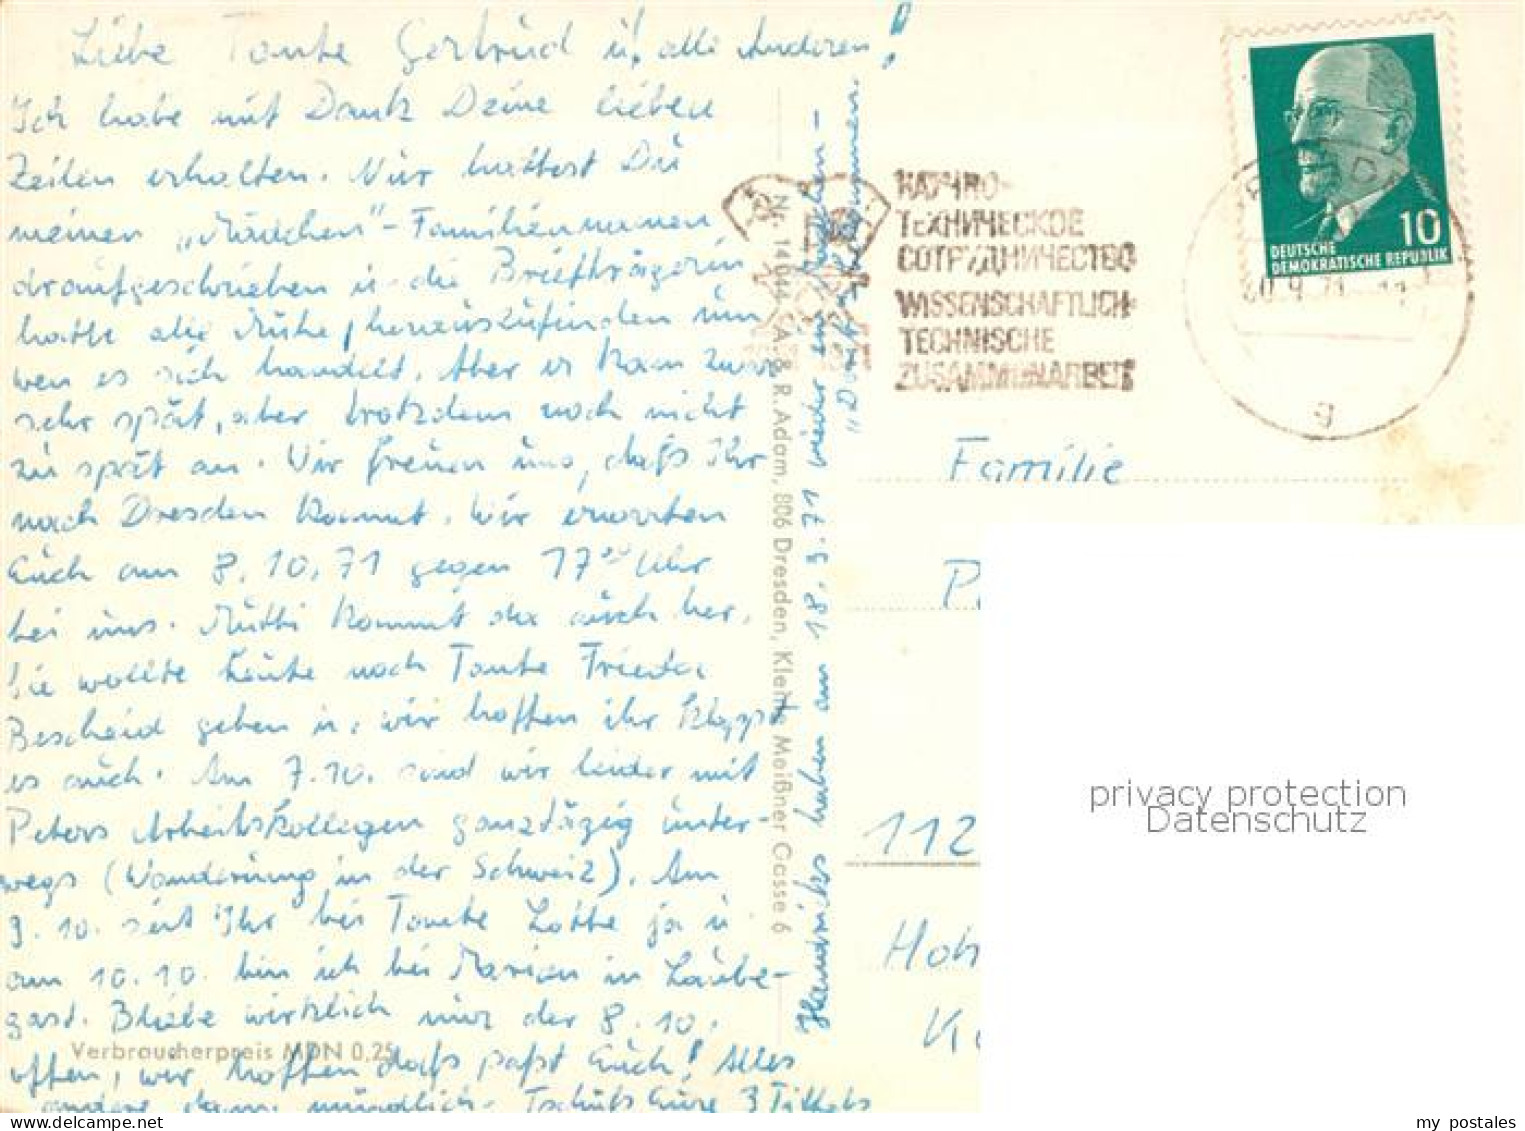 Liebe Tante Gertrud u. alle Anderen!
Ich habe mit Dank Deine lieben
Zeilen erhalten. Nur hattest Du
meinen „Mädchen"-Familiennamen
draufgeschrieben u. die Briefträgerin
hatte alle Mühe, herauszufinden um
wen es sich handelt. Aber er kam zwar
sehr spät, aber trotzdem noch nicht
zu spät an. Wir freuen uns, daß Ihr
nach Dresden kommt. Wir erwarten
Euch am 8.10.71 gegen 17⁰⁰ Uhr
bei uns. Mutti kommt da auch her.
Sie wollte heute noch Tante Frieda
Bescheid geben u. wir hoffen ihr klappt
es auch. Am 7.10. sind wir leider mit
Peters Arbeitskollegen ganztägig unter-
wegs (Wanderung in der Schweiz). Am
9.10. seit Ihr bei Tante Lotte ja u
am 10.10. bin ich bei Marion in Laube-
gast. Bliebe wirklich nur der 8.10.
offen, wir hoffen daß paßt Euch! Alles
andere dann mündlich. Tschüß Eure 3
Verbraucherpreis MDN 0,25
Nr. 14044 A. & R. Adam, 806 Dresden, Kleine Meißner Gasse 6
haben am 18.9.71 wieder ein
НАУЧНО-
ТЕХНИЧЕСКОЕ
СОТРУДНИЧЕСТВО
WISSENSCHAFTLICH-
TECHNISCHE
ZUSAMMENARBEIT
10
DEUTSCHE
DEMOKRATISCHE REPUBLIK
20.9.71
g
Familie
P
112
Hoh
K
privacy protection
Datenschutz
my postales